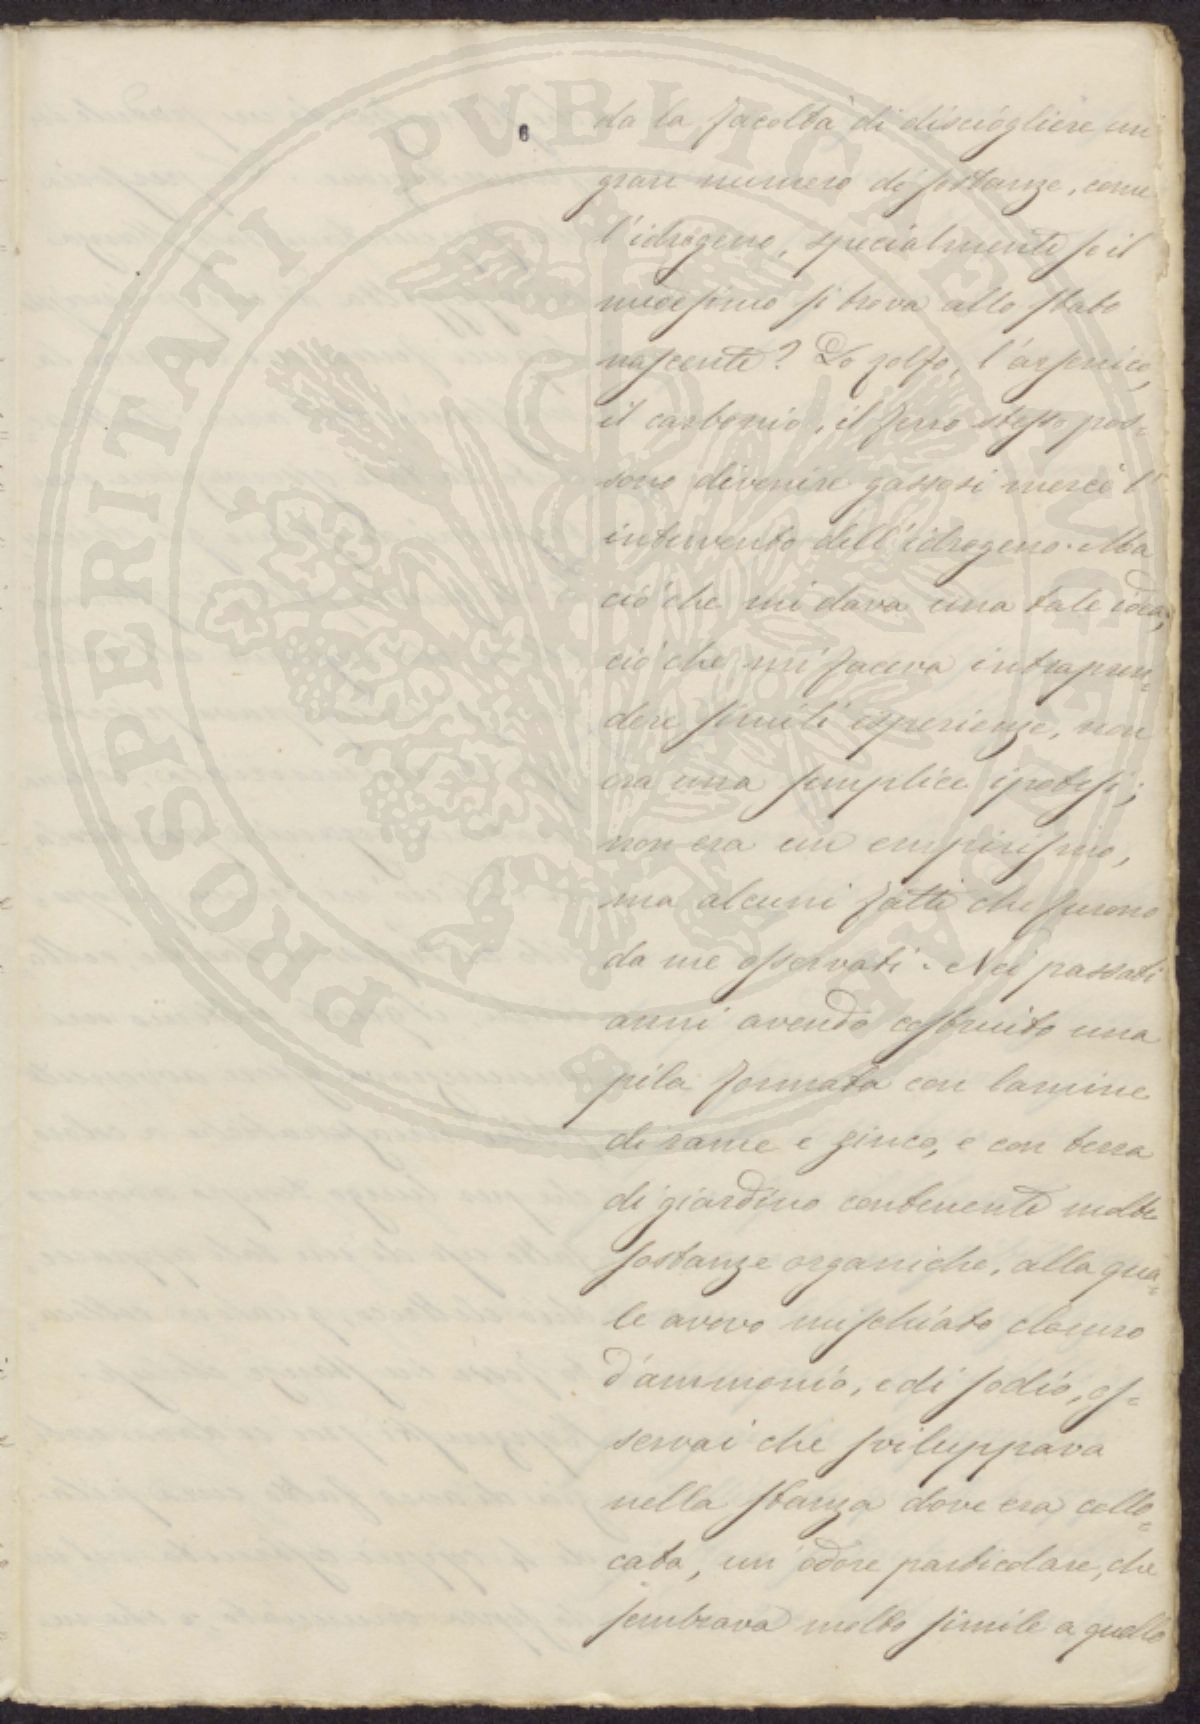 PROSPERITATI PUBLICAE AUGENDAE
da la facoltà di disciogliere un
gran numero di sostanze, come
l'idrogeno, specialmente se il
medesimo si trova allo stato
nascente? Lo zolfo, l'arsenico,
il carbonio, il ferro stesso pos-
sono divenire gassosi mercè l'
intervento dell'idrogeno. Ma
ciò che mi dava una tale idea,
ciò che mi faceva intrapren-
dere simili esperienze, non
era una semplice ipotesi;
non era un empirismo,
ma alcuni fatti che furono
da me osservati. Nei passati
anni avendo costruito una
pila formata con lamine
di rame e zinco, e con terra
di giardino contenente molte
sostanze organiche, alla qua-
le avevo mischiato cloruro
d'ammonio, e di sodio, os-
servai che sviluppava
nella stanza dove era collo-
cata, un odore particolare, che
sembrava molto simile a quello